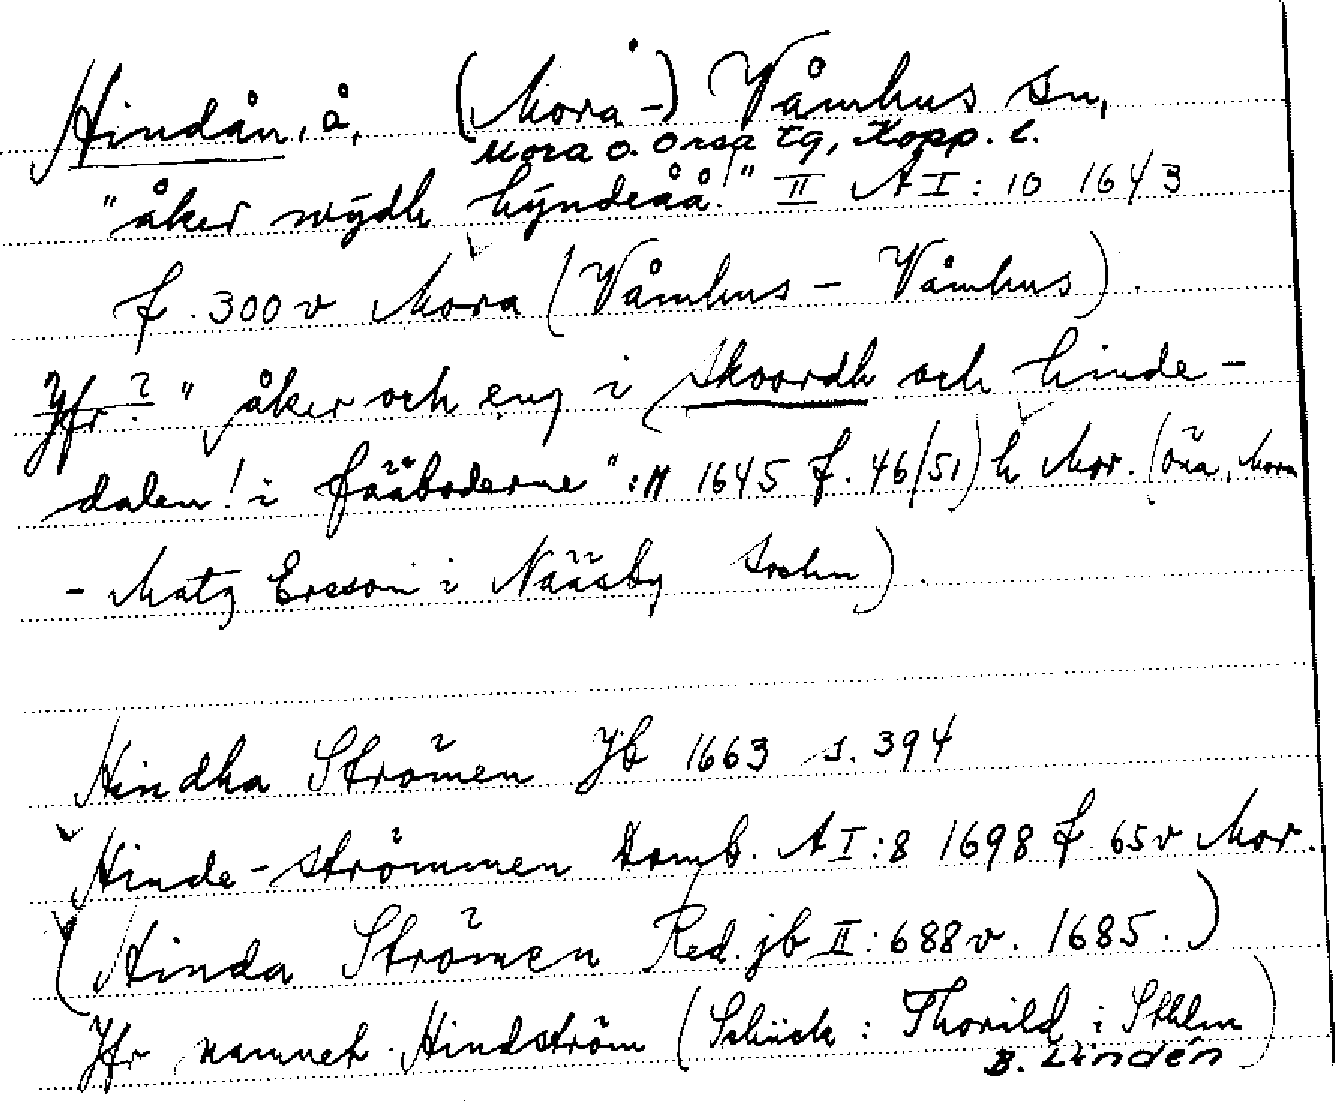 Hindån, å, (Mora-) Våmhus sn,
Mora o. Orsa tg, Kopp. l.
"åker wÿdh hÿndeåå!" II A I: 10 1643
f. 300 v Mora (Våmhus - Våmhus).
Jfr? "åker och eng i Skoordh och hinde-
dalen! i fääboderne": 1645 f. 46/51) h Mor. (Öna, Mora
- Matz Ersson i Nääsby sochn).
Hindha Strömen Jb 1663 s. 394
Hinde-strömmen Domb. A I:8 1698 f 65v Mor.
(Hinda Strömen Red. jb II: 688 v. 1685.)
Jfr namnet Hindström (Schück: Thorild i Sthlm)
B. Lindén